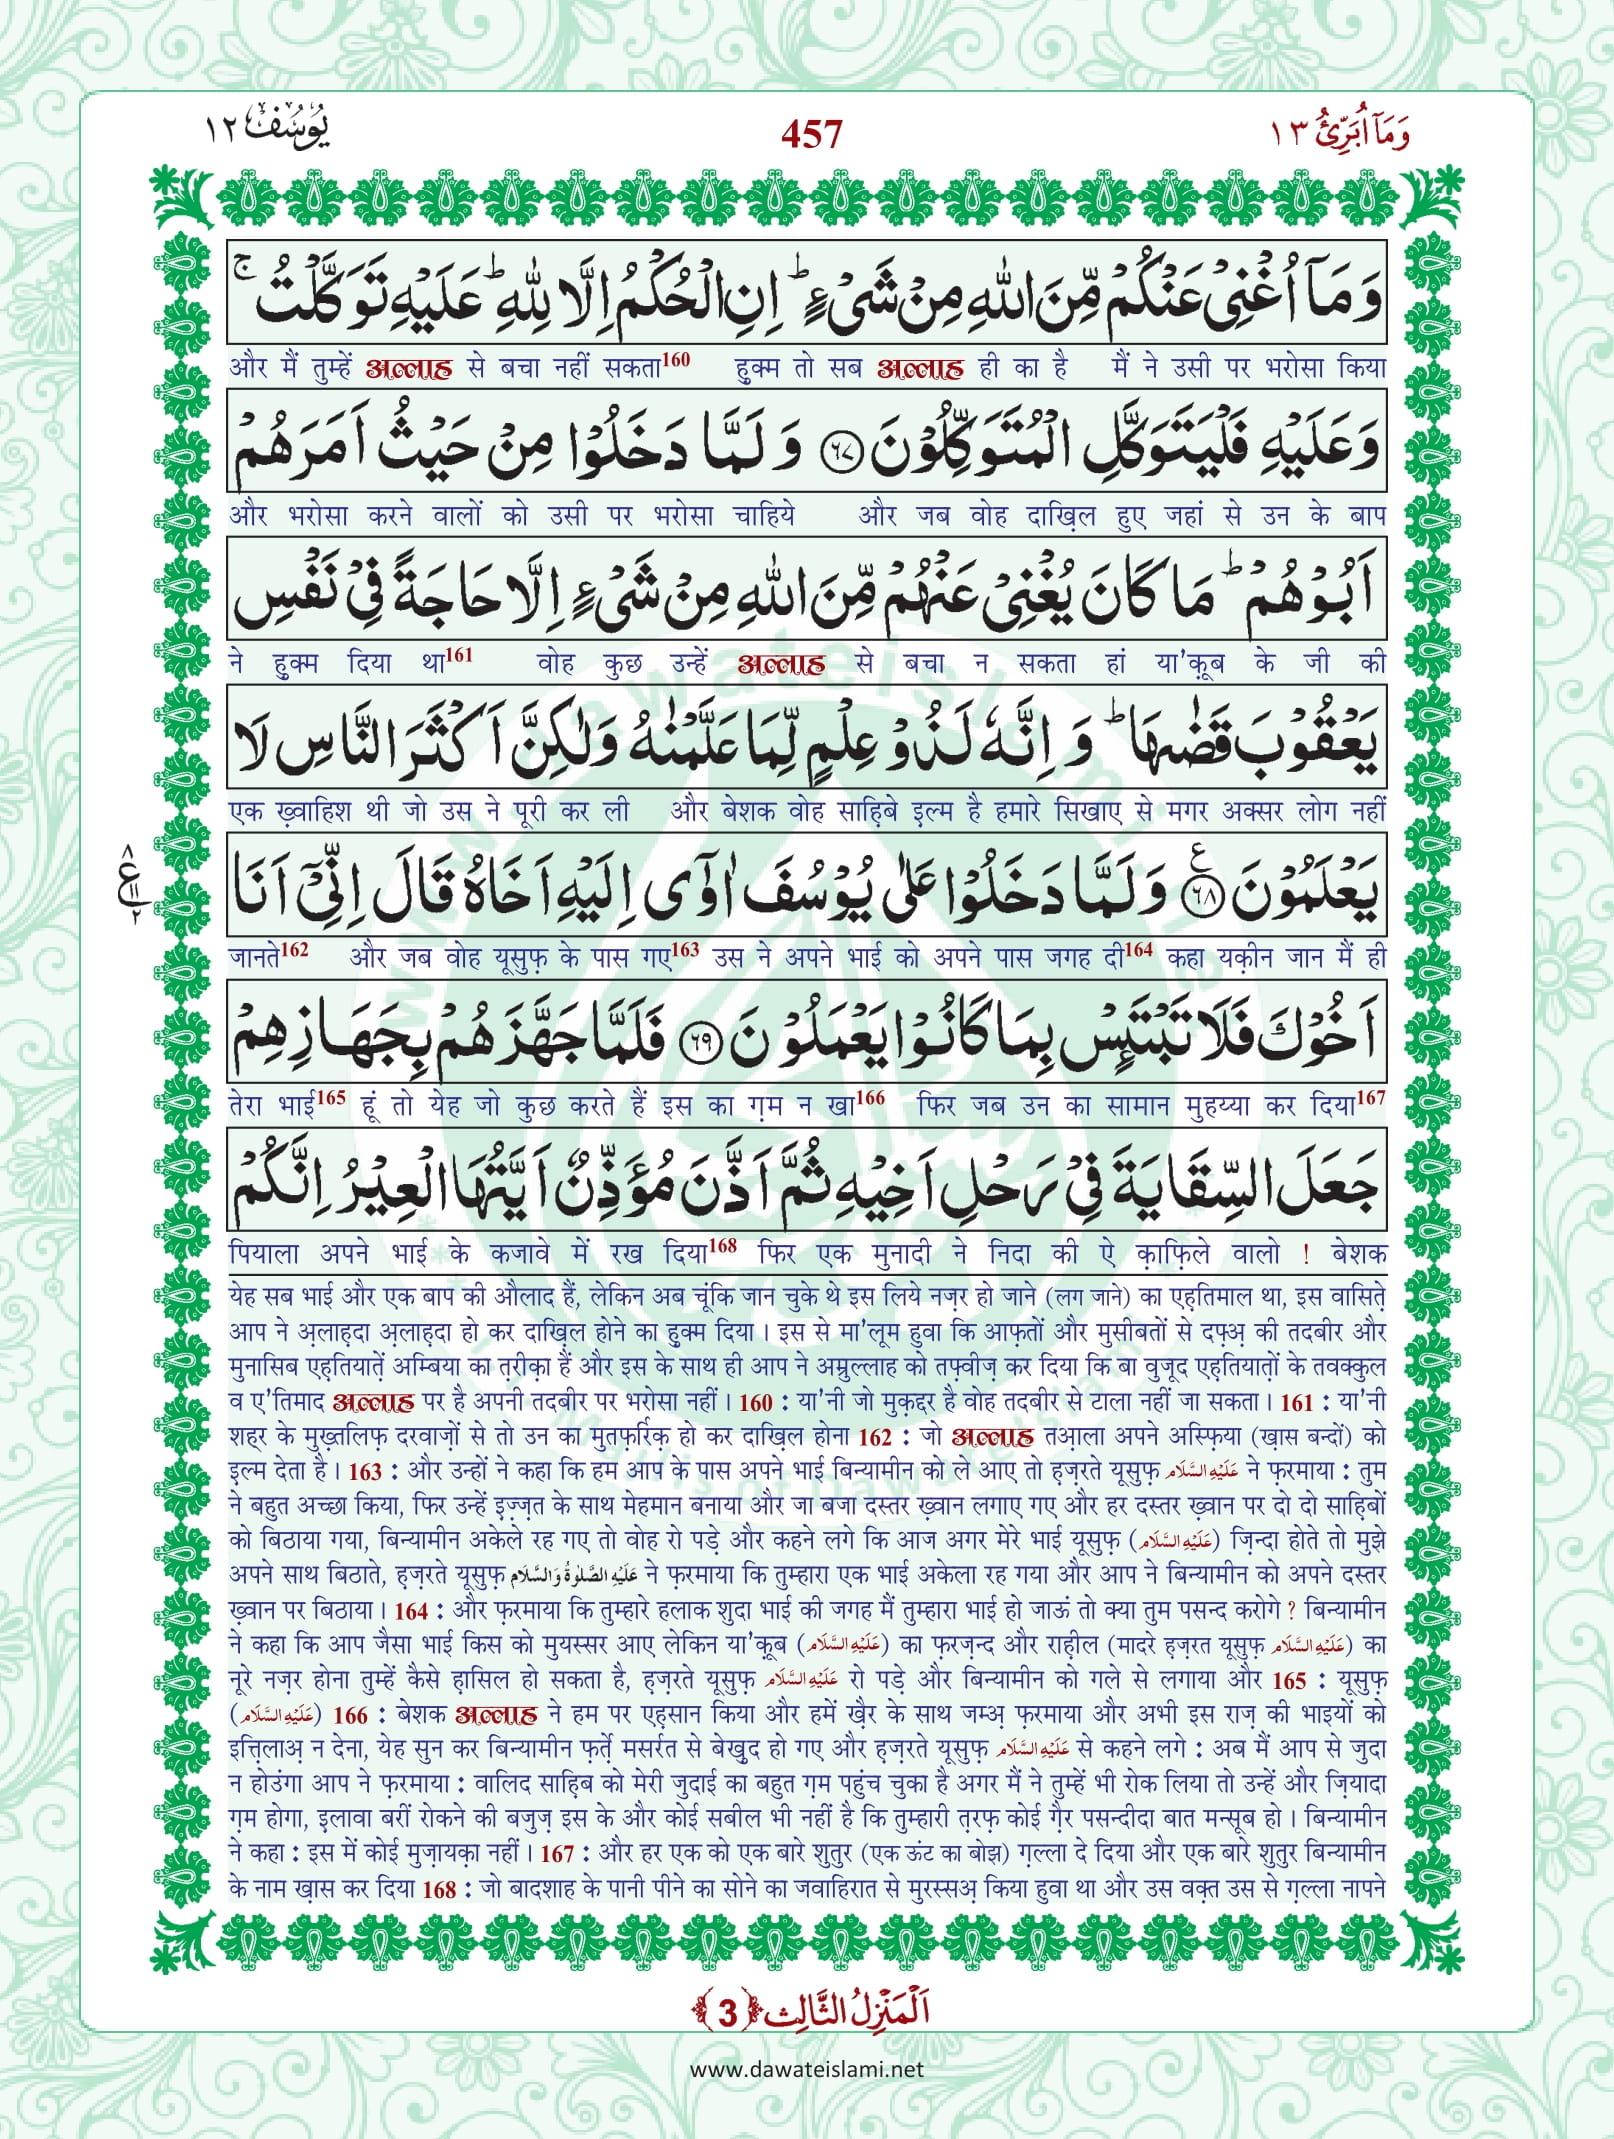 يُوْسُف ١٢ 457 وَمَاۤ اُبَرِّئُ ١٣
وَمَاۤ اُغْنِیْ عَنْكُمْ مِّنَ اللّٰهِ مِنْ شَیْءٍ ؕ اِنِ الْحُكْمُ اِلَّا لِلّٰهِ ؕ عَلَیْهِ تَوَكَّلْتُ ۚ
और मैं तुम्हें अल्लाह से बचा नहीं सकता160 हुक्म तो सब अल्लाह ही का है मैं ने उसी पर भरोसा किया
وَ عَلَیْهِ فَلْیَتَوَكَّلِ الْمُتَوَكِّلُوْنَ ﴿۶۷﴾ وَ لَمَّا دَخَلُوْا مِنْ حَیْثُ اَمَرَهُمْ
और भरोसा करने वालों को उसी पर भरोसा चाहिये और जब वोह दाख़िल हुए जहां से उन के बाप
اَبُوْهُمْ ؕ مَا كَانَ یُغْنِیْ عَنْهُمْ مِّنَ اللّٰهِ مِنْ شَیْءٍ اِلَّا حَاجَةً فِیْ نَفْسِ
ने हुक्म दिया था161 वोह कुछ उन्हें अल्लाह से बचा न सकता हां या'कूब के जी की
یَعْقُوْبَ قَضٰىهَا ؕ وَ اِنَّهٗ لَذُوْ عِلْمٍ لِّمَا عَلَّمْنٰهُ وَلٰكِنَّ اَكْثَرَ النَّاسِ لَا
एक ख़्वाहिश थी जो उस ने पूरी कर ली और बेशक वोह साहिबे इल्म है हमारे सिखाए से मगर अक्सर लोग नहीं
یَعْلَمُوْنَ ﴿۶۸﴾ ع وَ لَمَّا دَخَلُوْا عَلٰی یُوْسُفَ اٰوٰۤی اِلَیْهِ اَخَاهُ قَالَ اِنِّیْۤ اَنَا
जानते162 और जब वोह यूसुफ़ के पास गए163 उस ने अपने भाई को अपने पास जगह दी164 कहा यक़ीन जान मैं ही
اَخُوْكَ فَلَا تَبْتَىِٕسْ بِمَا كَانُوْا یَعْمَلُوْنَ ﴿۶۹﴾ فَلَمَّا جَهَّزَهُمْ بِجَهَازِهِمْ
तेरा भाई165 हूं तो येह जो कुछ करते हैं इस का ग़म न खा166 फिर जब उन का सामान मुहय्या कर दिया167
جَعَلَ السِّقَایَةَ فِیْ رَحْلِ اَخِیْهِ ثُمَّ اَذَّنَ مُؤَذِّنٌ اَیَّتُهَا الْعِیْرُ اِنَّكُمْ
पियाला अपने भाई के कजावे में रख दिया168 फिर एक मुनादी ने निदा की ऐ क़ाफ़िले वालो ! बेशक
येह सब भाई और एक बाप की औलाद हैं, लेकिन अब चूंकि जान चुके थे इस लिये नज़र हो जाने (लग जाने) का एह़तिमाल था, इस वासित़े
आप ने अ़लाह़दा अ़लाह़दा हो कर दाख़िल होने का हुक्म दिया । इस से मा'लूम हुवा कि आफ़तों और मुसीबतों से दफ़्अ़ की तदबीर और
मुनासिब एह़तियात़ें अम्बिया का त़रीक़ा हैं और इस के साथ ही आप ने अम्रुल्लाह को तफ़्वीज़ कर दिया कि बा वुजूद एह़तियात़ों के तवक्कुल
व ए'तिमाद अल्लाह पर है अपनी तदबीर पर भरोसा नहीं । 160 : या'नी जो मुक़द्दर है वोह तदबीर से टाला नहीं जा सकता । 161 : या'नी
शहर के मुख़्तलिफ़ दरवाज़ों से तो उन का मुतफ़र्रिक़ हो कर दाख़िल होना 162 : जो अल्लाह तआ़ला अपने अस्फ़िया (ख़ास बन्दों) को
इल्म देता है । 163 : और उन्हों ने कहा कि हम आप के पास अपने भाई बिन्यामीन को ले आए तो ह़ज़रते यूसुफ़ عَلَيْهِ السَّلَام ने फ़रमाया : तुम
ने बहुत अच्छा किया, फिर उन्हें इज़्ज़त के साथ मेहमान बनाया और जा बजा दस्तर ख़्वान लगाए गए और हर दस्तर ख़्वान पर दो दो साह़िबों
को बिठाया गया, बिन्यामीन अकेले रह गए तो वोह रो पड़े और कहने लगे कि आज अगर मेरे भाई यूसुफ़ (عَلَيْهِ السَّلَام) ज़िन्दा होते तो मुझे
अपने साथ बिठाते, ह़ज़रते यूसुफ़ عَلَيْهِ الصَّلٰوةُ وَالسَّلَام ने फ़रमाया कि तुम्हारा एक भाई अकेला रह गया और आप ने बिन्यामीन को अपने दस्तर
ख़्वान पर बिठाया । 164 : और फ़रमाया कि तुम्हारे हलाक शुदा भाई की जगह मैं तुम्हारा भाई हो जाऊं तो क्या तुम पसन्द करोगे ? बिन्यामीन
ने कहा कि आप जैसा भाई किस को मुयस्सर आए लेकिन या'क़ूब (عَلَيْهِ السَّلَام) का फ़रज़न्द और राह़ील (मादरे ह़ज़रत यूसुफ़ عَلَيْهِ السَّلَام) का
नूरे नज़र होना तुम्हें कैसे ह़ासिल हो सकता है, ह़ज़रते यूसुफ़ عَلَيْهِ السَّلَام रो पड़े और बिन्यामीन को गले से लगाया और 165 : यूसुफ़
(عَلَيْهِ السَّلَام) 166 : बेशक अल्लाह ने हम पर एह़सान किया और हमें ख़ैर के साथ जम्अ़ फ़रमाया और अभी इस राज़ की भाइयों को
इत़्त़िलाअ़ न देना, येह सुन कर बिन्यामीन फ़र्ते़ मसर्रत से बेख़ुद हो गए और ह़ज़रते यूसुफ़ عَلَيْهِ السَّلَام से कहने लगे : अब मैं आप से जुदा
न होउंगा आप ने फ़रमाया : वालिद साह़िब को मेरी जुदाई का बहुत ग़म पहुंच चुका है अगर मैं ने तुम्हें भी रोक लिया तो उन्हें और ज़ियादा
ग़म होगा, इलावा बरीं रोकने की बजुज़ इस के और कोई सबील भी नहीं है कि तुम्हारी त़रफ़ कोई ग़ैर पसन्दीदा बात मन्सूब हो । बिन्यामीन
ने कहा : इस में कोई मुज़ायक़ा नहीं । 167 : और हर एक को एक बारे शुतुर (एक ऊंट का बोझ) ग़ल्ला दे दिया और एक बारे शुतुर बिन्यामीन
के नाम ख़ास कर दिया 168 : जो बादशाह के पानी पीने का सोने का जवाहिरात से मुरस्सअ़ किया हुवा था और उस वक़्त उस से ग़ल्ला नापने
اَلْمَنْزِلُ الثَّالِث ﴿3﴾
www.dawateislami.net